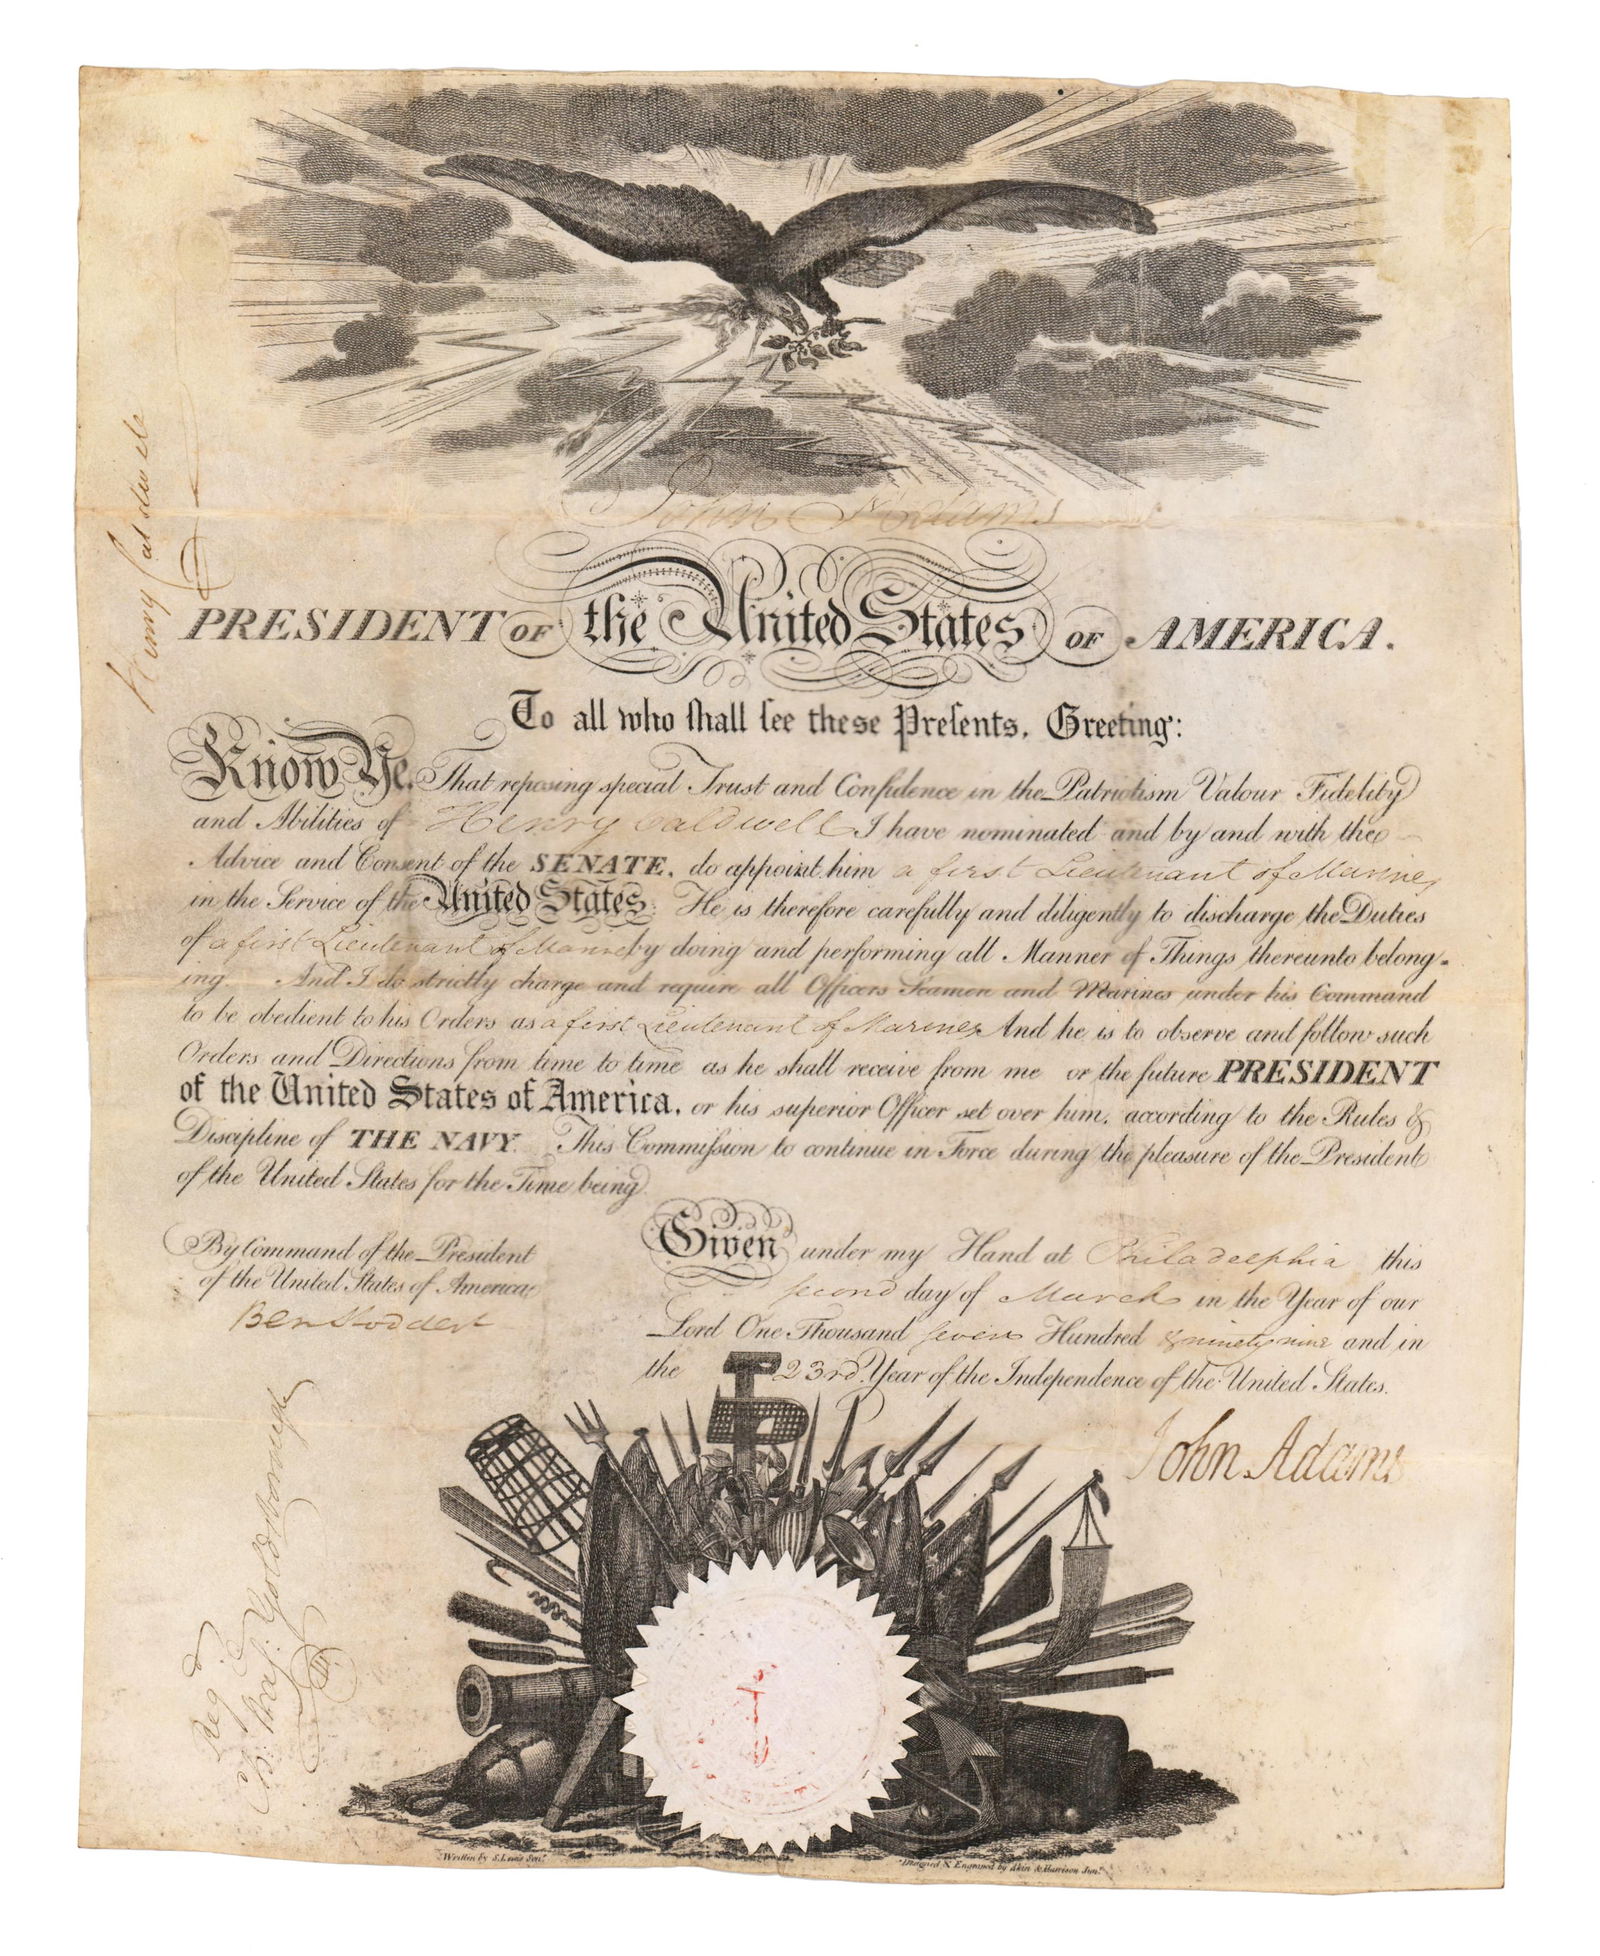 John Adams
PRESIDENT OF the United States OF AMERICA.
To all who ſhall ſee these Preſents, Greeting:
Know Ye, That reposing special Trust and Confidence in the Patriotism Valour Fidelity
and Abilities of Henry Caldwell I have nominated and by and with the
Advice and Consent of the SENATE, do appoint him a first Lieutenant of Marines
in the Service of the United States: He is therefore carefully and diligently to discharge the Duties
of a first Lieutenant of Marines by doing and performing all Manner of Things thereunto belong-
ing. And I do strictly charge and require all Officers Seamen and Marines under his Command
to be obedient to his Orders as a first Lieutenant of Marines And he is to observe and follow such
Orders and Directions from time to time as he shall receive from me or the future PRESIDENT
of the United States of America, or his superior Officer set over him, according to the Rules &
Discipline of THE NAVY. This Commiſsion to continue in Force during the pleasure of the President
of the United States for the Time being.
By Command of the President
of the United States of America
Ben Stoddert
Given under my Hand at Philadelphia this
second day of March in the Year of our
Lord One Thousand seven Hundred & ninety nine and in
the 23rd Year of the Independence of the United States.
John Adams
Henry Caldwell
Reg.d
Ch: Goldsborough
Written by S. Lewis Sen.r
Designed & Engraved by Akin & Harrison Jun.r